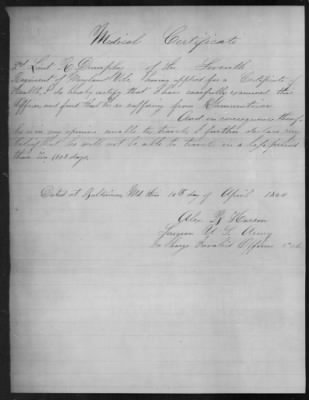 Medical Certificate
Lieut Dunaphy of the Seventh
Regiment of Maryland Vols. having applied for a Certificate of
Health, I do hereby certify that I have carefully examined this
Officer, and find that he is suffering from Rheumatism
And in consequence thereof
he is in my opinion unable to travel. I further declare my
belief that he will not be able to travel in a less period
than days.
Dated at Baltimore Md this 16th day of April 1864
Alex B Hasson
Surgeon U. S. Army
In charge Invalid Officers